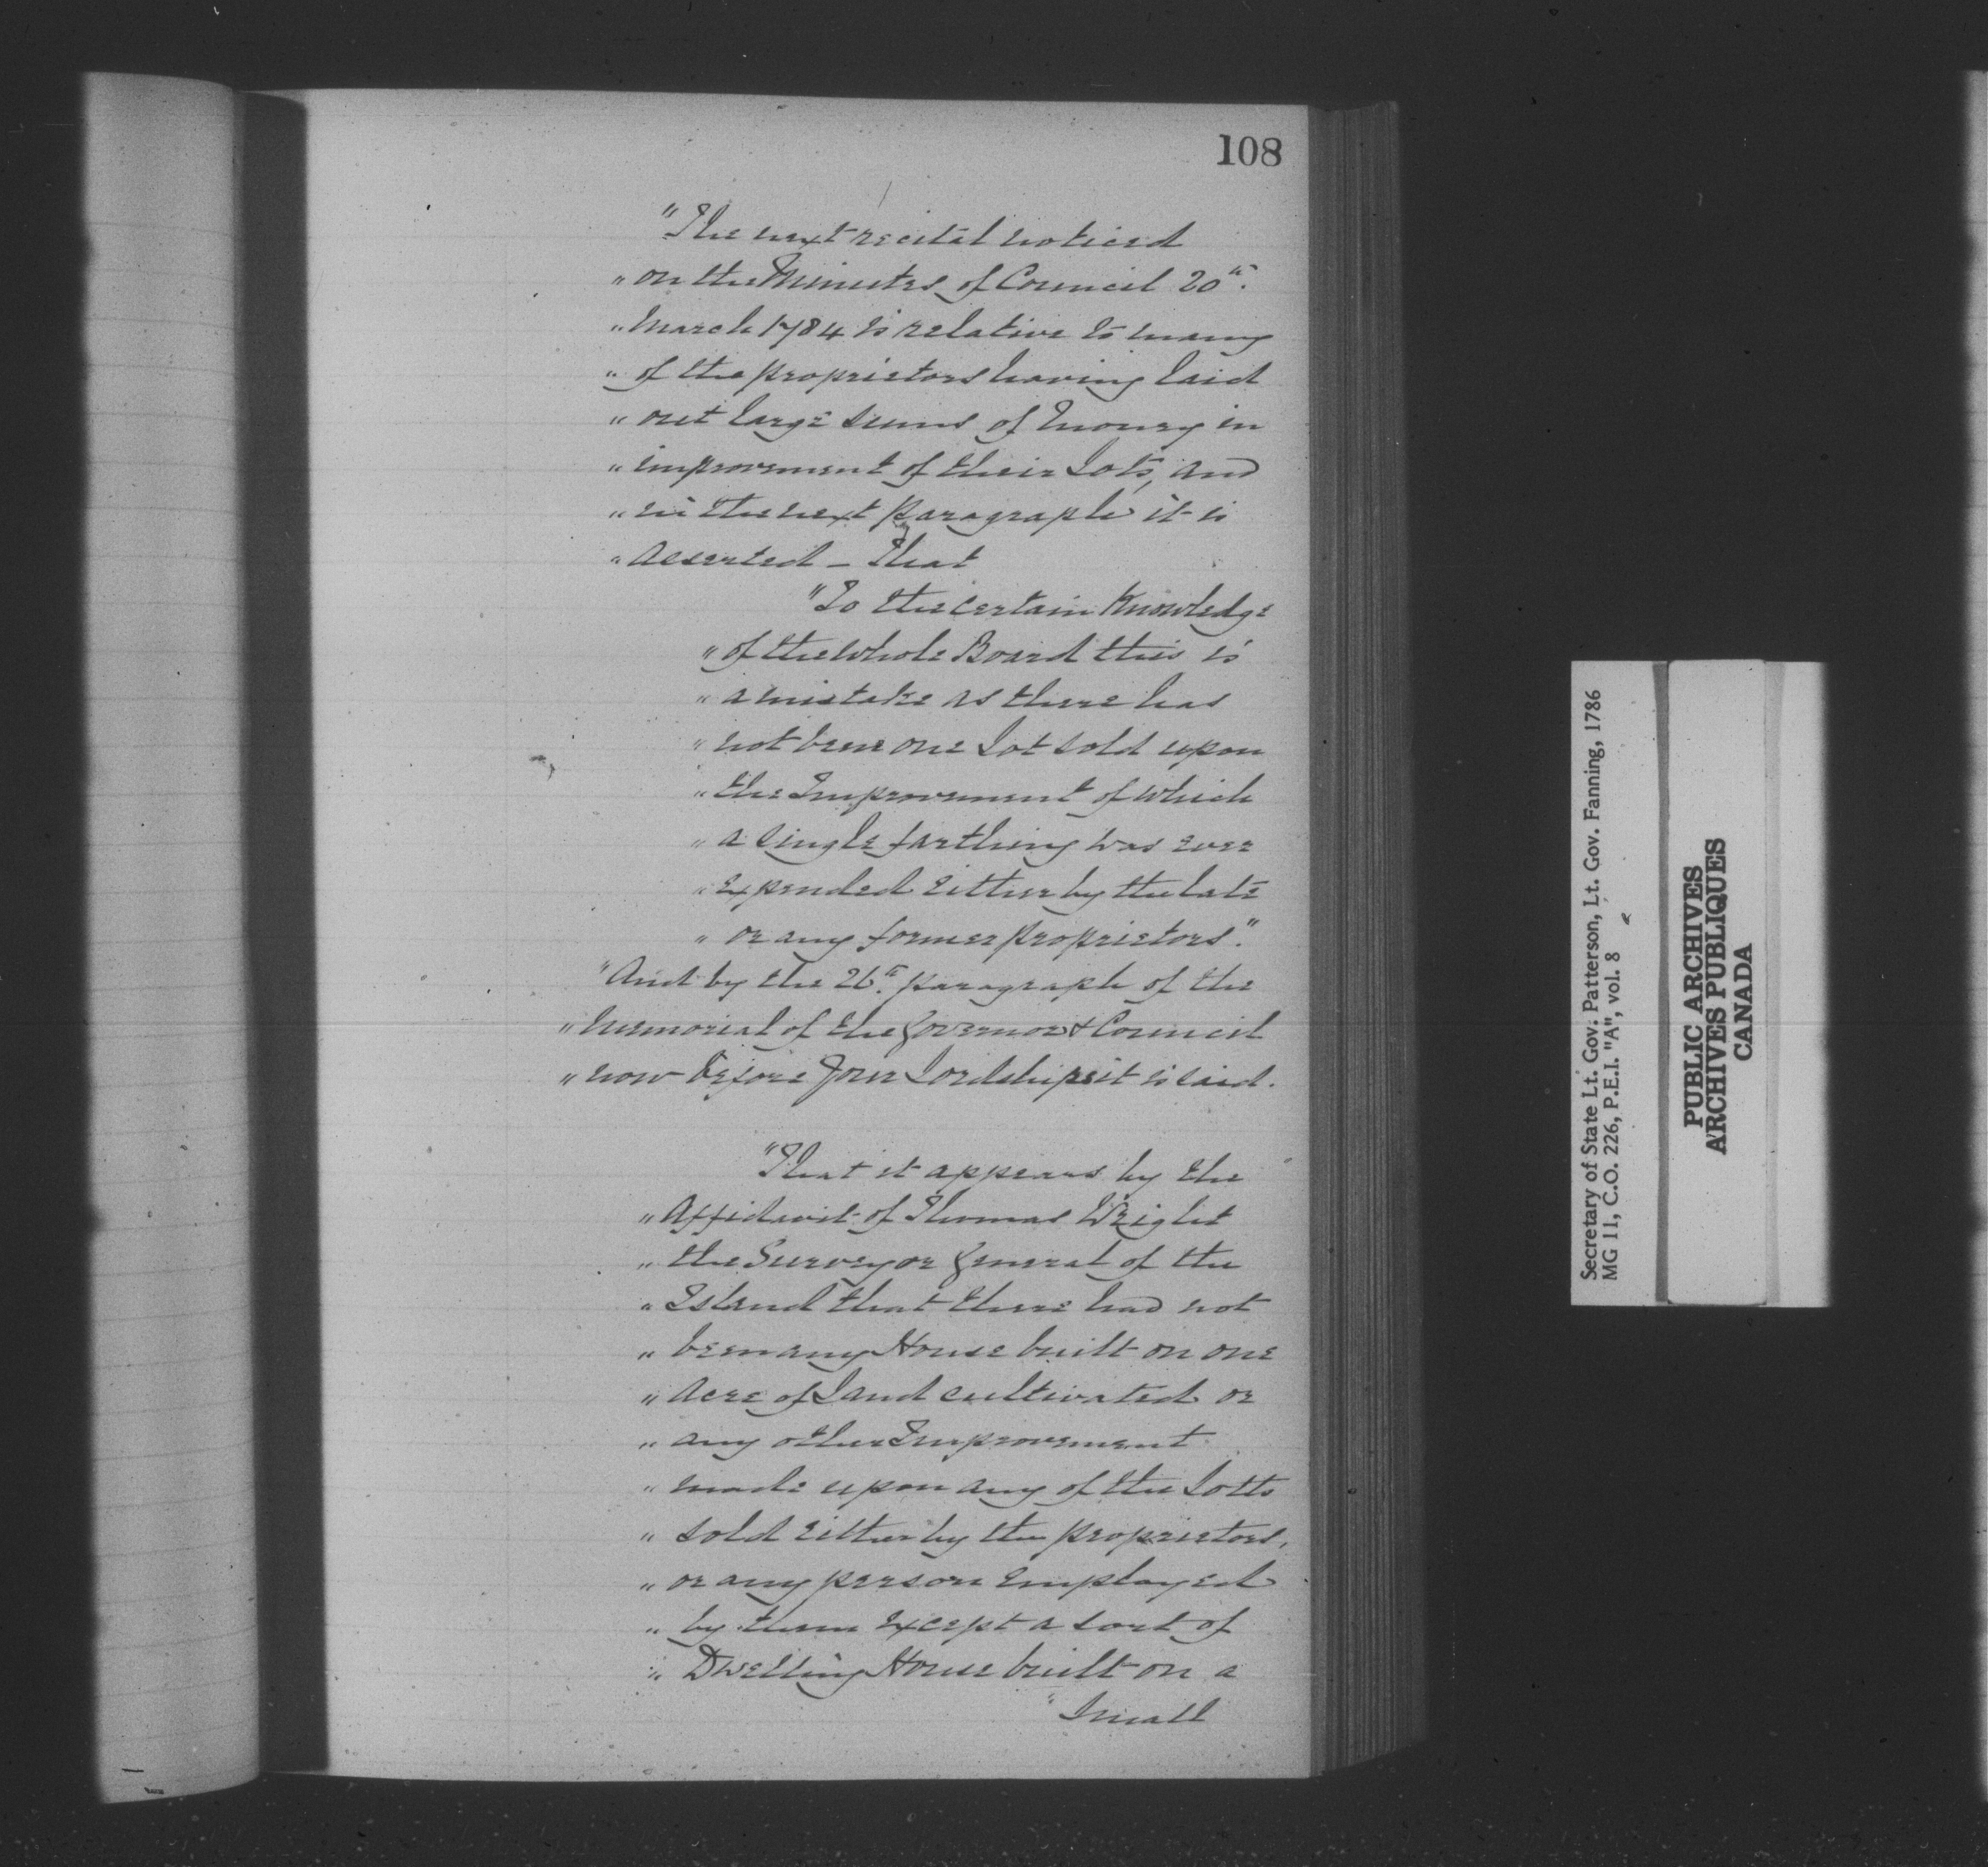 108
"The next recital noticed
" on the Minutes of Council 20th.
" March 1784 is relative to many
" of the proprietors having laid
" out large sums of money in
" improvement of their Lots, and
" in the next paragraph it is
" asserted – That
"To the certain Knowledge
" of the whole Board this is
" a mistake as there has
" not been one Lot sold upon
" the Improvement of which
" a single farthing was ever
" expended either by the late
" or any former proprietors."
"And by the 26th. paragraph of the
" memorial of the Governor & Council
" now before Your Lordships it is said.
"That it appears by the
" Affidavit of Thomas Wright
" the Surveyor General of the
" Island that there had not
" been any House built on one
" Acre of Land cultivated or
" any other Improvement
" made upon any of the Lotts
" sold either by the proprietors,
" or any person employed
" by them except a sort of
" Dwelling House built on a
" Small
Secretary of State Lt. Gov. Patterson, Lt. Gov. Fanning, 1786
MG 11, C.O. 226, P.E.I. "A", vol. 8
PUBLIC ARCHIVES
ARCHIVES PUBLIQUES
CANADA